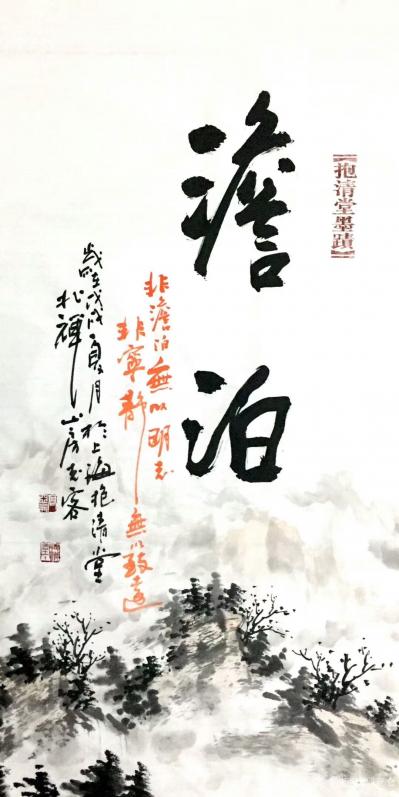 【抱清堂墨蹟】
澹泊
非澹泊無以明志
非寧靜無以致遠
歲在戊戌夏月於上海抱清堂
松禪山房老客